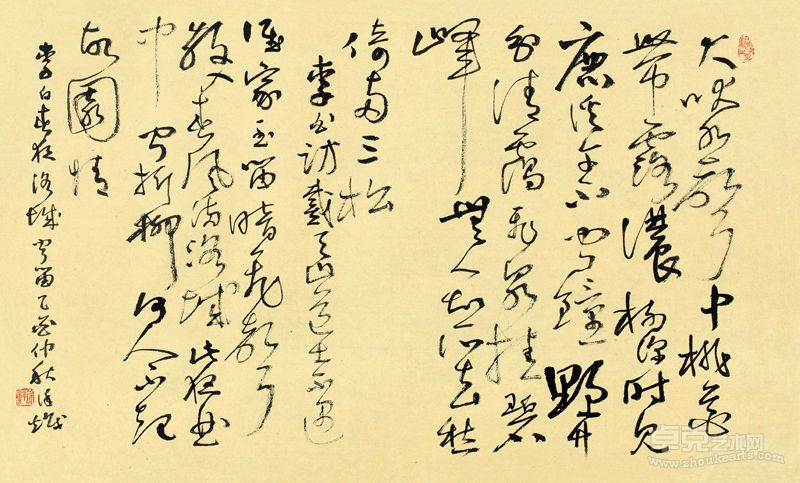 犬吠水声中桃花
带露浓树深时见
鹿溪午不闻钟野竹
分清霭飞泉挂碧
峰无人知所去愁
倚两三松
李白访戴天山道士不遇
谁家玉笛暗飞声
散入春风满洛城此夜曲
中闻折柳何人不起
故园情
李白春夜洛城闻笛乙酉仲秋
卓克艺术网
www.zhoukearts.com